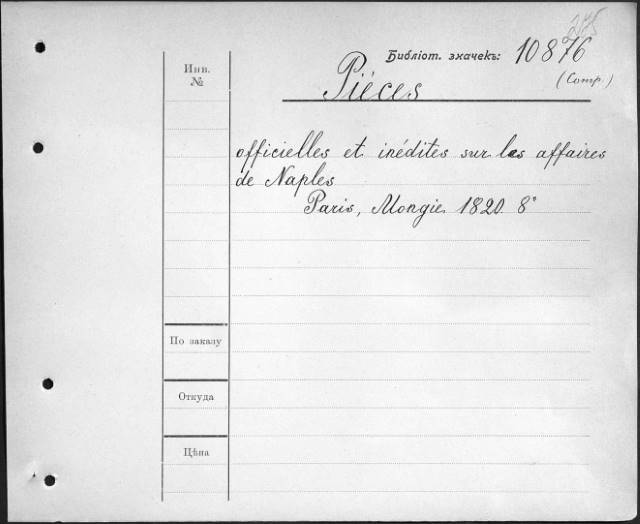 Библіот. значекъ: 10876
(Сотр.)
Инв.
№
Pièces
officielles et inédites sur les affaires
de Naples
Paris, Mongie 1820. 8°
По заказу
Откуда
Цѣна